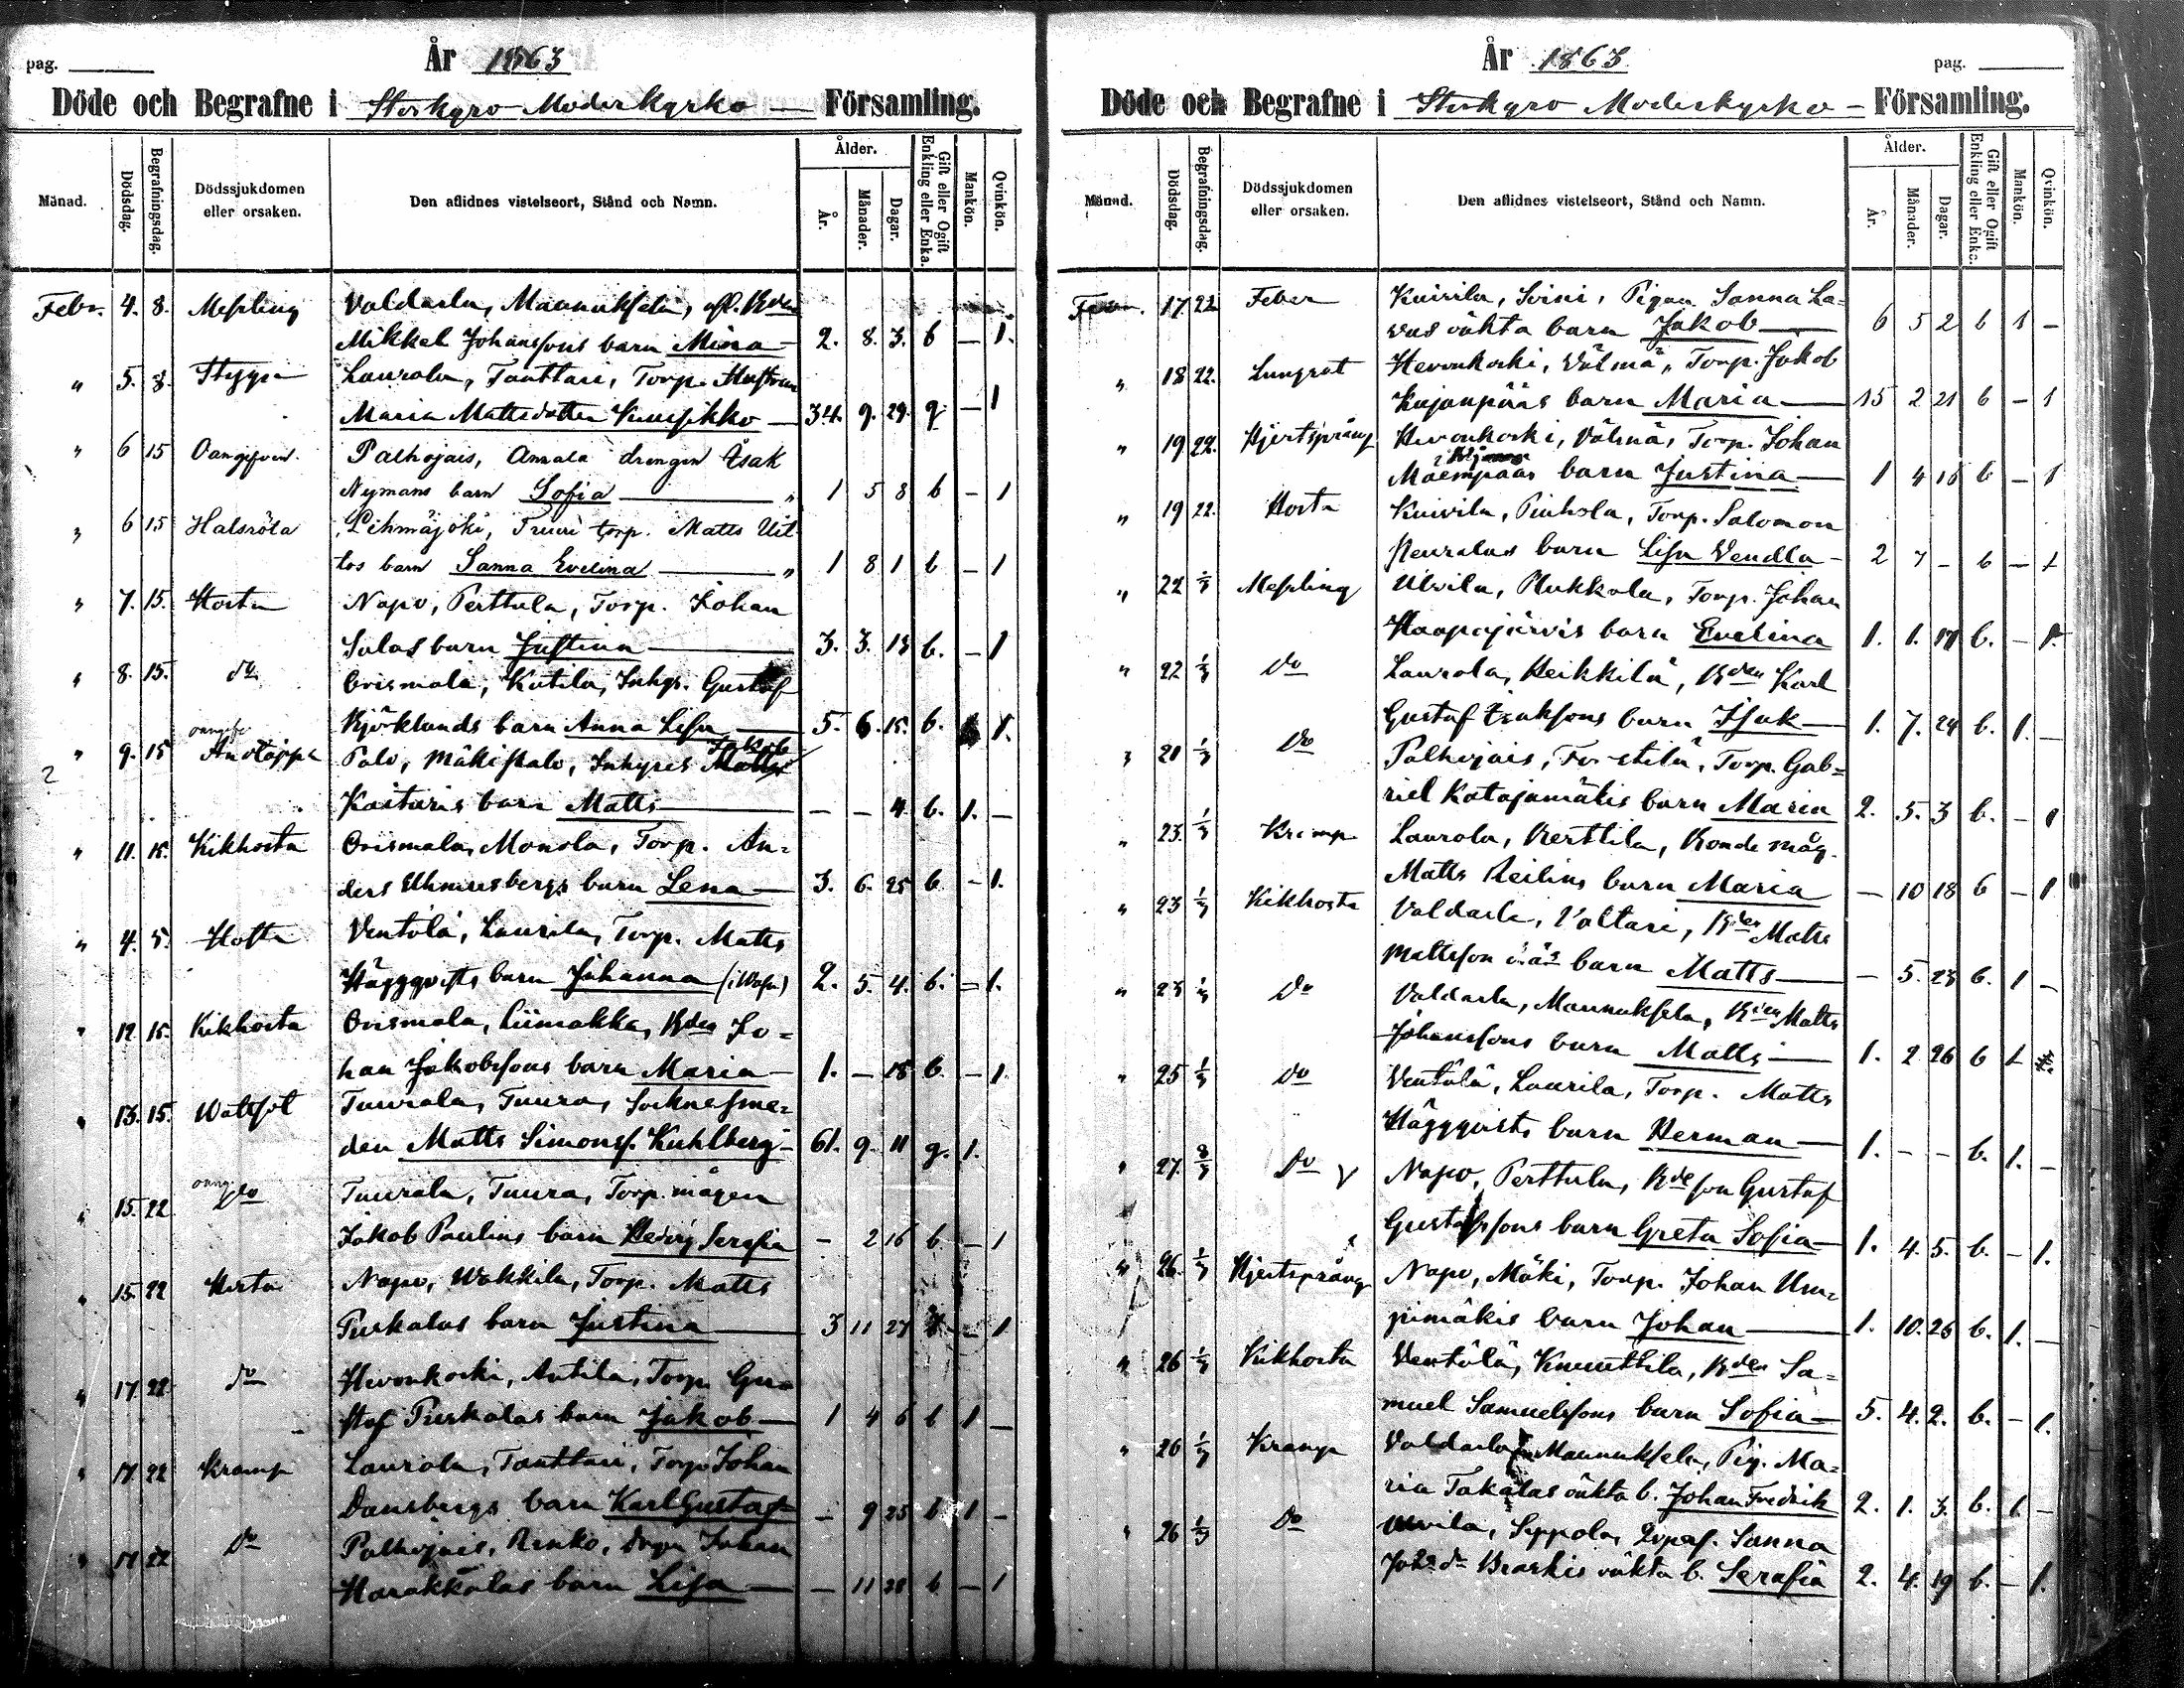 pag.
År 1863
Döde och Begrafne i Storkyro Moderkyrko Församling.
Månad. Dödsdag. Begrafningsdag. Dödssjukdomen eller orsaken. Den aflidnes vistelseort, Stånd och Namn. Ålder. År. Månader. Dagar. Gift eller Ogift Enkling eller Enka. Mankön. Qvinkön.
Febr. 4. 8. Messling Valdarla, Maunuksela, afl. Bden
Mikkel Johanssons barn Mina 2. 8. 3. b — 1.
" 5. 8. Laurola, Tanttari, Torp. Hustrun
Maria Mattsdotter 34. 9. 29. g — 1
" 6 15 Oangifven. Palhojais, Annala drengen Isak
Nymans barn Sofia " 1 5 8 b — 1
" 6 15 Halsröta Lehmäjoki, Truvi torp. Matts Uit-
tos barn Sanna Evelina " 1 8 1 b — 1
" 7. 15. Hosta Napo, Perttula, Torp. Johan
Salos barn Justina 3. 3. 13 b. — 1
" 8. 15. do Orismala, Katila, Inhys. Gustaf
Björklunds barn Anna Lisa 5. 6. 15. b. 1.
" 9. 15 oangifv Andtäppa Palo, Mäkipalo, Inhyses Jakob
Kaitaris barn Matts — — 4. b. 1. —
" 11. 15. Kikhosta Orismala, Monola, Torp. An-
ders barn Lena 3. 6. 25 b — 1.
" 4. 5. Hosta Ventölä, Laurila, Torp. Matts
Häggqvists barn Johanna (i Wasa) 2. 5. 4. b. — 1.
" 12 15. Kikhosta Orismala, Liimakka, Bden Jo-
han Jakobssons barn Maria 1. — 18 b. — 1.
" 13. 15. Wattsot Tuurala, Tuura, Socknesme-
den Matts Simonss. Kuhlberg 61. 9. 11 g. 1.
" 15. 22 oang. do Tuurala, Tuura, Torp. mågen
Jakob Paulins barn Hedvig Serafia — 2 16 b — 1
" 15. 22 Hosta Napo, Wakkila, Torp. Matts
Purkalas barn Justina 3 11 27 — 1
" 17. 22 do Hevonkoski, Antila, Torp. Gu-
staf Purkalas barn Jakob 1 4 6 b 1 —
" 17. 22 Kramp Laurola, Tanttari, Torp. Johan
Dansbergs barn Karl Gustaf — 9 25 b 1 —
" 17 22 Do Palhojais, Renko, Johan
Harakkalas barn Lisa — 11 28 b — 1
År 1863.
pag.
Döde och Begrafne i Storkyro Moderkyrko Församling.
Månad. Dödsdag. Begrafningsdag. Dödssjukdomen eller orsaken. Den aflidnes vistelseort, Stånd och Namn. Ålder. År. Månader. Dagar. Gift eller Ogift Enkling eller Enka. Mankön. Qvinkön.
Febr. 17 22 Feber Kuivila, Soini, Pigan Sanna La-
vus oäkta barn Jakob 6 5 2 b 1 —
" 18 22. Lungsot Hevonkoski, Välmä, Torp. Jakob
Kujanpääs barn Maria 15 2 21 b — 1
" 19 22. Hjertsprång Hevonkoski, Välmä, Torp. Johan
Mäenpääs barn Justina 1 4 15 b — 1
" 19 22. Hosta Kuivila, Pinhola, Torp. Salomon
barn Lisa Vendla 2 7 — b — 1
" 22 1/3 Messling Ulvila, Plukkola, Torp. Johan
Haapajärvis barn Evelina 1. 1. 17 b. — 1.
" 22 1/3 do Laurola, Heikkilä, Bden Karl
Gustaf Isaksons barn Isak 1. 7. 24 b. 1. —
" 21 1/3 do Palhojais, Torp. Gab-
riel Katajamäkis barn Maria 2. 5. 3 b. — 1
" 23. 1/3 Kramp Laurola, Perttila, Bonde måg.
Matts Reilins barn Maria — 10 18 b — 1
" 23 1/3 Kikhosta Valdarla, Valtari, Bden Matts
Mattsson barn Matts — 5. 23 b. 1 —
" 23 1/3 do Valdarla, Maunuksela, Bden Matts
Johanssons barn Matts 1. 2 26 b 1
" 25 1/3 do Ventälä, Laurila, Torp. Matts
Häggqvists barn Herman 1. — — b. 1. —
" 27. 8/3 do Napo, Perttula, Bde son Gustaf
Gustafssons barn Greta Sofia 1. 4. 5. b. — 1.
" 26. 1/3 Hjertsprång Napo, Mäki, Torp. Johan Um-
pimäkis barn Johan 1. 10. 26 b. 1. —
" 26 1/3 Kikhosta Ventälä, Knuuttila, Bden Sa-
muel Samuelssons barn Sofia 5. 4. 2. b. — 1.
" 26 1/3 Kramp Valdarla, Maunuksela, Pig. Ma-
ria Takalas oäkta b. Johan Fredrik 2. 1. 3. b. 1 —
" 26 1/3 do Ulvila, Seppola, Sanna
oäkta b. Serafia 2. 4. 19 b. — 1.